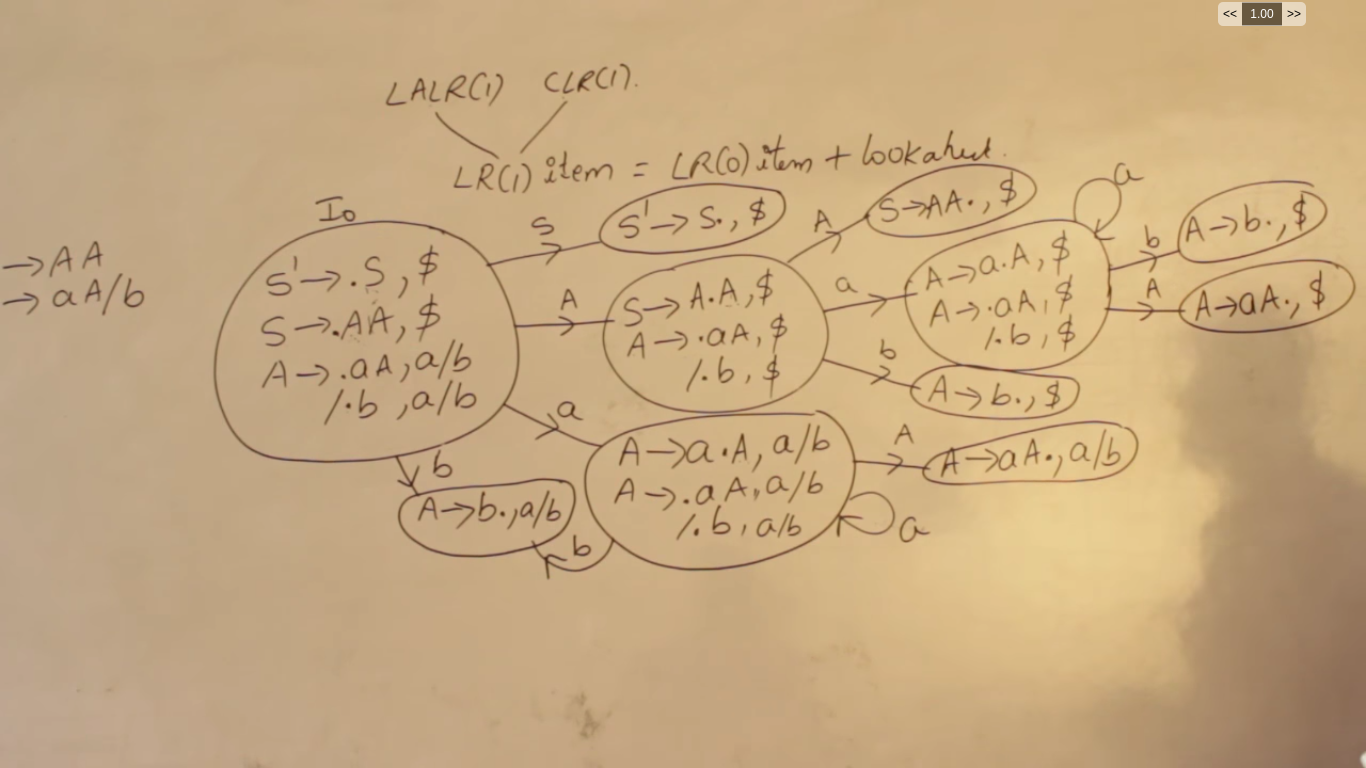 << 1.00 >>
LALR(1) CLR(1).
LR(1) item = LR(0) item + lookahead.
→AA
→aA/b
I₀
S'→.S, $
S→.AA, $
A→.aA, a/b
/.b, a/b
S
S'→S., $
A
S→A.A, $
A→.aA, $
/.b, $
A
S→AA., $
a
A→a.A, $
A→.aA, $
/.b, $
a
b
A→b., $
A
A→aA., $
b
A→b., $
a
A→a.A, a/b
A→.aA, a/b
/.b, a/b
A
A→aA., a/b
a
b
A→b., a/b
b